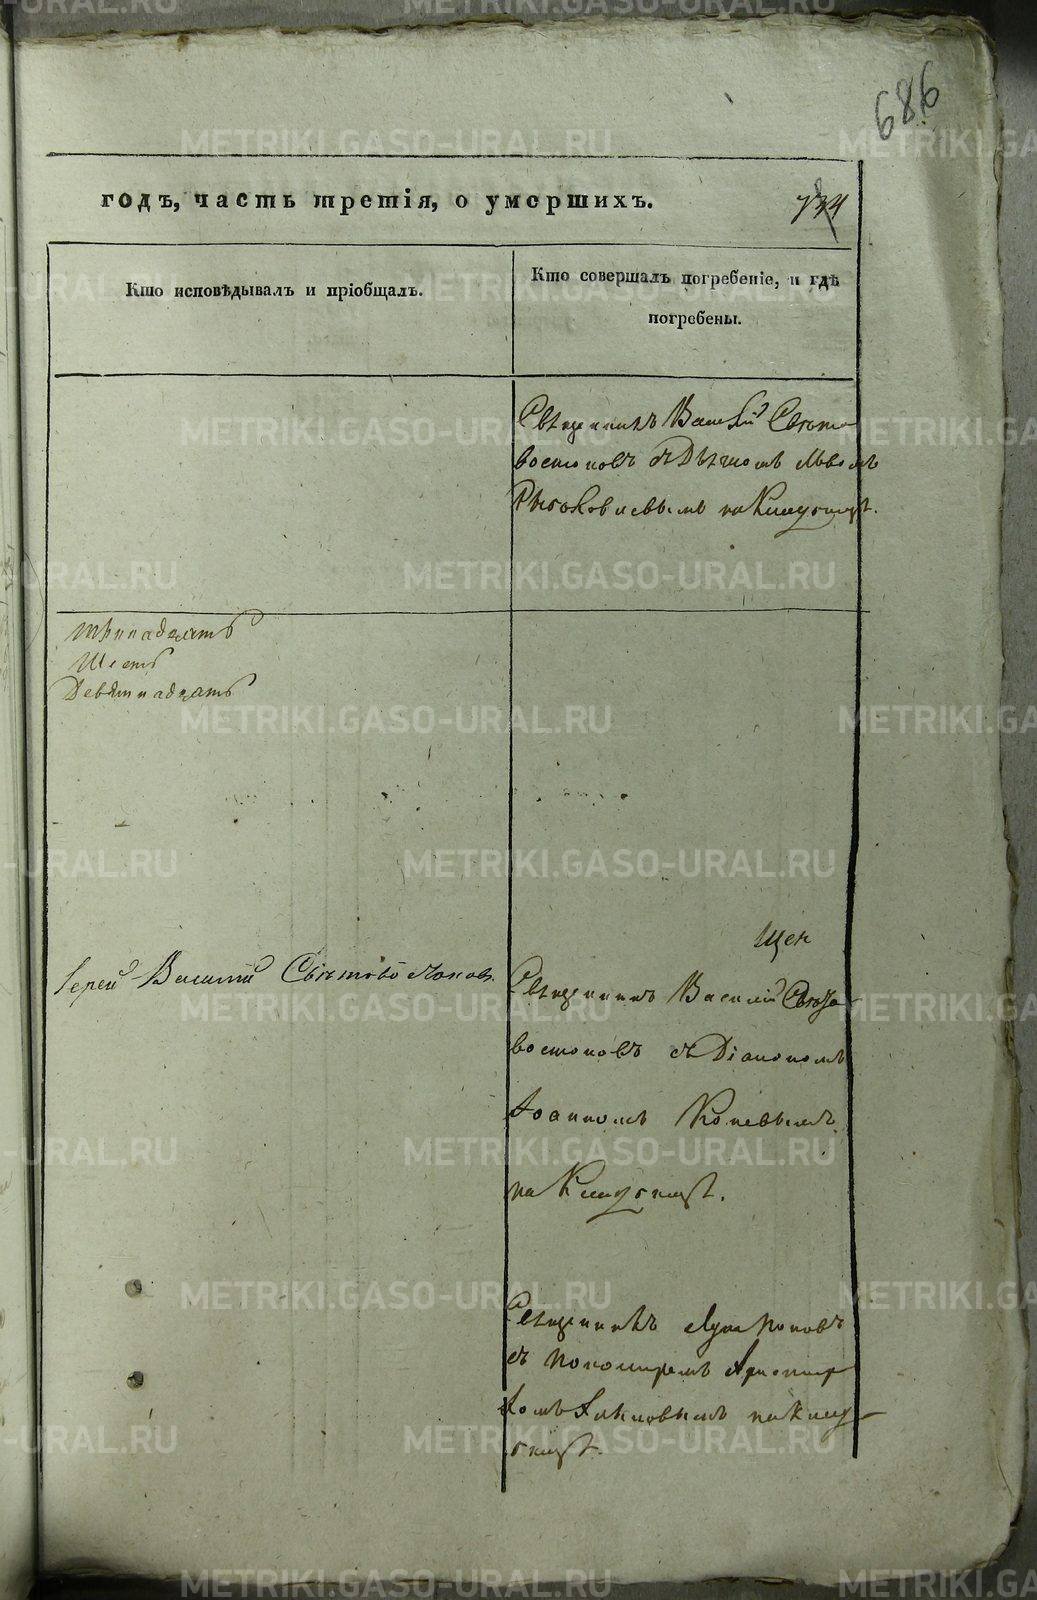 686
годъ, часть третія, о умершихъ.
734
Кто исповѣдывалъ и пріобщалъ.
Кто совершалъ погребеніе, и гдѣ
погребены.
Священникъ Василій Свѣто
востоковъ съ Дьячкомъ Львомъ
на Кладбищѣ.
тринадцать
Шесть
Девятнадцать
Іерей Василій Свѣтовостоковъ.
Священникъ Василій Свѣто
востоковъ съ Діакономъ
Іоанномъ
на Кладбищѣ.
Священникъ Лука Поповъ
съ пономаремъ
на Клад
бищѣ.
METRIKI.GASO-URAL.RU